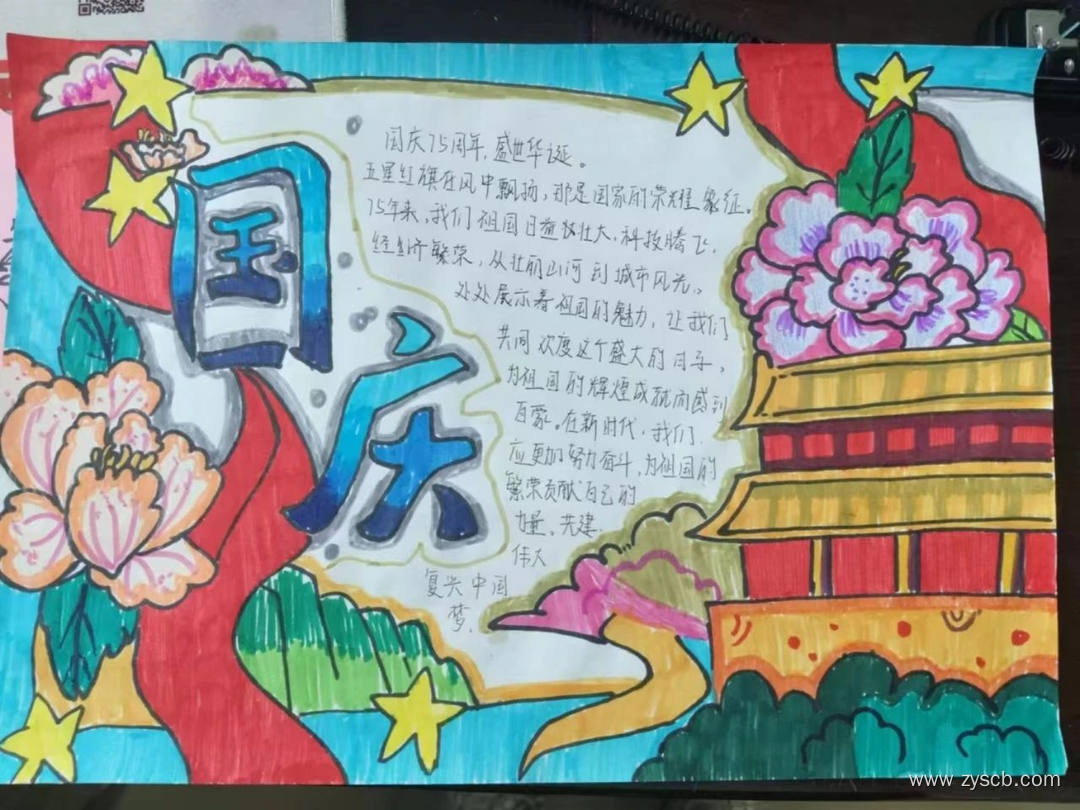 国庆
国庆75周年，盛世华诞。
五星红旗在风中飘扬，那是国家的荣耀象征。
75年来，我们祖国日益壮大，科技腾飞，
经济繁荣，从壮丽山河到城市风光，
处处展示着祖国的魅力，让我们
共同欢度这个盛大的日子，
为祖国的辉煌成就而感到
自豪。在新时代，我们
应更加努力奋斗，为祖国的
繁荣贡献自己的
力量。共建
伟大
复兴中国
梦.
www.zyscb.com